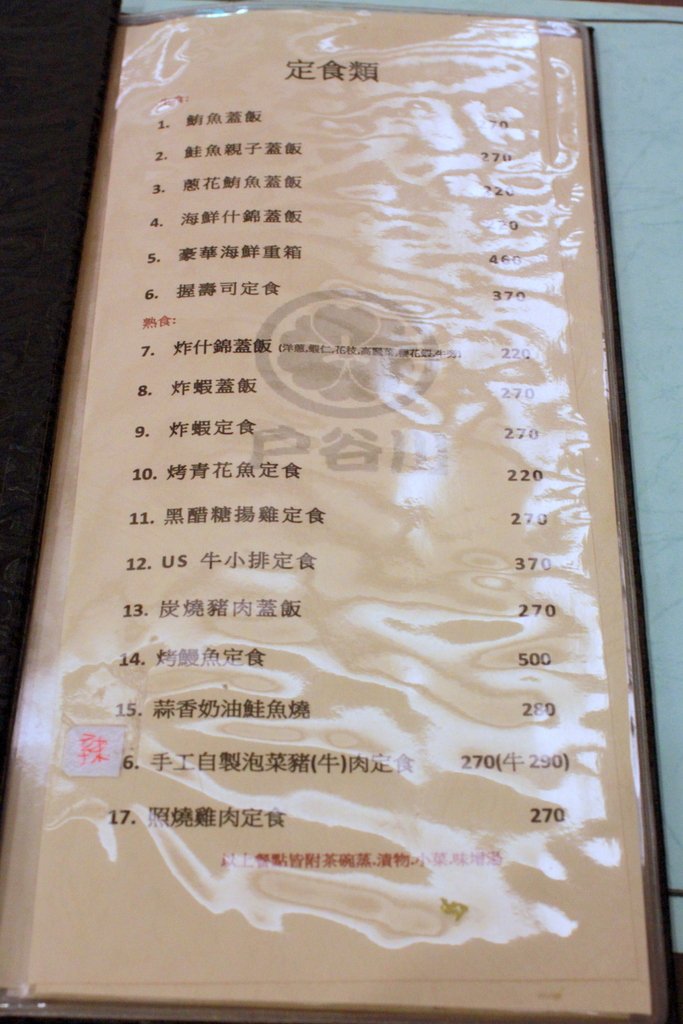 定食類
1. 鮪魚蓋飯
2. 鮭魚親子蓋飯 270
3. 蔥花鮪魚蓋飯 220
4. 海鮮什錦蓋飯
5. 豪華海鮮重箱 460
6. 握壽司定食 370
熟食:
7. 炸什錦蓋飯 (洋蔥.蝦仁.花枝.高麗菜.櫻花蝦.牛蒡) 220
8. 炸蝦蓋飯 270
9. 炸蝦定食 270
戶谷川
10. 烤青花魚定食 220
11. 黑醋糖揚雞定食 270
12. US 牛小排定食 370
13. 炭燒豬肉蓋飯 270
14. 烤鰻魚定食 500
15. 蒜香奶油鮭魚燒 280
辣 6. 手工自製泡菜豬(牛)肉定食 270(牛290)
17. 照燒雞肉定食 270
以上餐點皆附茶碗蒸.漬物.小菜.味增湯